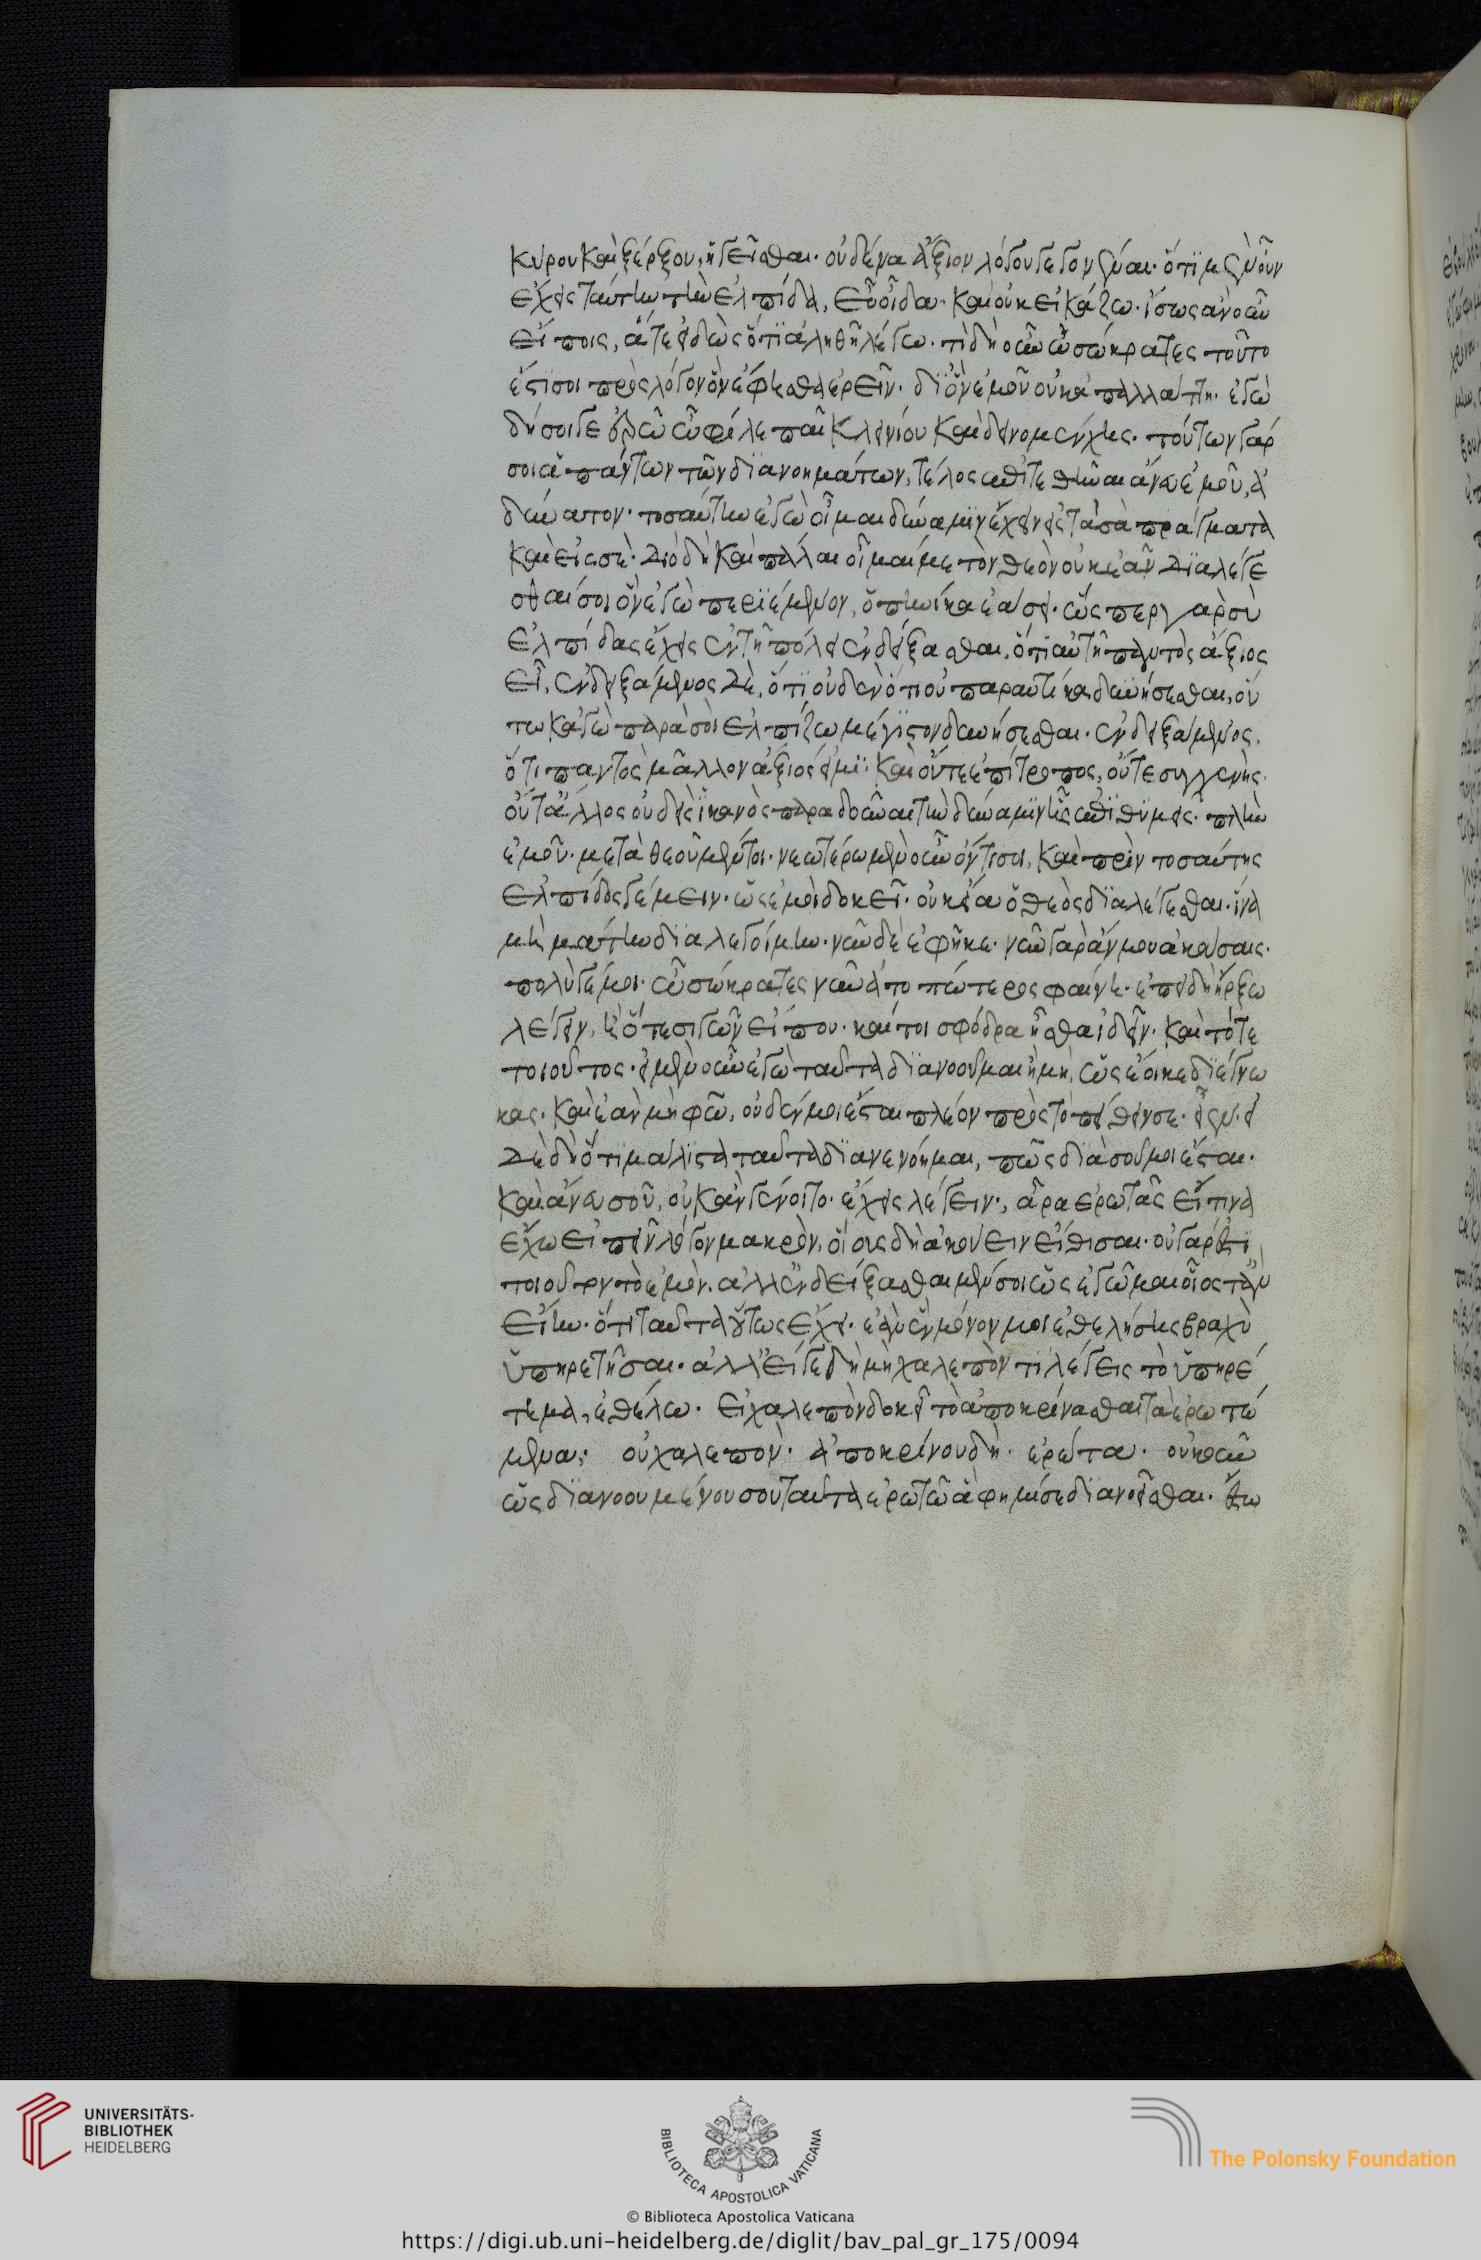 κύρου καὶ ξέρξου, ἡγεῖσθαι οὐδένα ἄξιον λόγου γεγονέναι. ὅτι μὲν οὖν
ἔχεις ταύτην τὴν ἐλπίδα, εὖ οἶδα. καὶ οὐκ εἰκάζω. ἴσως ἂν οὖν
εἴποις, ἅτε εἰδὼς ὅτι ἀληθῆ λέγω. τί δὴ οὖν ὦ σώκρατες τοῦτο
ἔστι σοι πρὸς λόγον ὃν ἔφησθα ἐρεῖν. δι ὃν ἐμοῦ οὐκ ἀπαλλάττη. ἐγὼ
δή σοί γε ἐρῶ ὦ φίλε παῖ κλεινίου καὶ δεινομένχης. τούτων γάρ
σοι ἁπάντων τῶν διανοημάτων, τέλος ἐπιτεθῆναι ἄνευ ἐμοῦ, ἀ
δύνατον. τοσαύτην ἐγὼ οἶμαι δύναμιν ἔχειν εἰς τὰ σὰ πράγματα
καὶ εἰς σέ. διὸ δὴ καὶ πάλαι οἶμαί με τὸν θεὸν οὐκ ἐᾶν διαλέγε
σθαί σοι ὃν ἐγὼ περιέμενον, ὁπηνίκα ἐάσει. ὥσπερ γὰρ σὺ
ἐλπίδας ἔχεις ἐν τῆ πόλει ἐνδείξασθαι, ὅτι αὐτῆ παντὸς ἄξιος
εἶ, ἐνδειξάμενος δὲ, ὅτι οὐδὲν ὅτι οὐ παραυτίκα δυνήσεσθαι, οὕ
τω κἀγὼ παρὰ σοὶ ἐλπίζω μέγιστον δυνήσεσθαι. ἐνδειξάμενος,
ὅτι παντὸς μᾶλλον ἄξιός εἰμι. καὶ οὔτε ἐπίτροπος, οὔτε συγγενὴς.
οὔτ ἄλλος οὐδεὶς ἱκανὸς παραδοῦναι τὴν δύναμιν ἧς ἐπιθυμεῖς. πλὴν
ἐμοῦ. μετὰ θεοῦ μέντοι. νεωτέρω μὲν οὖν ὄντι σοι, καὶ πρὶν τοσαύτης
ἐλπίδος γέμειν. ὡς ἐμοὶ δοκεῖ. οὐκ εἴα ὁ θεὸς διαλέγεσθαι. ἵνα
μὴ μάτην διαλεγοίμην. νῦν δὲ ἐφῆκε. νῦν γὰρ ἄν μου ἀκούσαις.
πολύ γέ μοι. ὦ σώκρατες νῦν ἀτοπώτερος φαίνη. ἐπειδὴ ἤρξω
λέγειν, ἢ ὅτε σιγῶν εἵπου. καίτοι σφόδρα ἦσθα ἰδεῖν. καὶ τότε
τοιοῦτος. εἰ μὲν οὖν ἐγὼ ταῦτα διανοοῦμαι ἢ μὴ, ὡς ἔοικε διέγνω
κας. καὶ ἐὰν μὴ φῶ, οὐδέν μοι ἔσται πλέον πρὸς τὸ πείθειν σε. εἶεν. εἰ
δὲ δὴ ὅτι μάλιστα ταῦτα διανενόημαι, πῶς διὰ σοῦ μοι ἔσται.
καὶ ἄνευ σοῦ, οὐκ ἂν γένοιτο. ἔχεις λέγειν. ἆρα ἐρωτᾶς εἴ τινα
ἔχω εἰπεῖν λόγον μακρὸν, οἵους δὴ ἀκούειν εἴθισαι. οὐ γάρ ἐστι
τοιοῦτον τὸ ἐμὸν. ἀλλ ἐνδείξασθαι μέν σοι ὡς ἐγῶμαι οἷός τ ἂν
εἴην. ὅτι ταῦτα οὕτως ἔχει. ἐὰν ἓν μόνον μοι ἐθελήσης βραχὺ
ὑπηρετῆσαι. ἀλλ εἴ γε δὴ μὴ χαλεπὸν τι λέγεις τὸ ὑπηρέ
τημα, ἐθέλω. εἰ χαλεπὸν δοκεῖ τὸ ἀποκρίνασθαι τὰ ἐρωτώ
μενα; οὐ χαλεπόν. ἀποκρίνου δὴ. ἐρώτα. οὐκοῦν
ὡς διανοουμένου σου ταῦτα ἐρωτῶ ἅ φημί σε διανοεῖσθαι. ἔστω
UNIVERSITÄTS-
BIBLIOTHEK
HEIDELBERG
BIBLIOTECA APOSTOLICA VATICANA
The Polonsky Foundation
© Biblioteca Apostolica Vaticana
https://digi.ub.uni-heidelberg.de/diglit/bav_pal_gr_175/0094